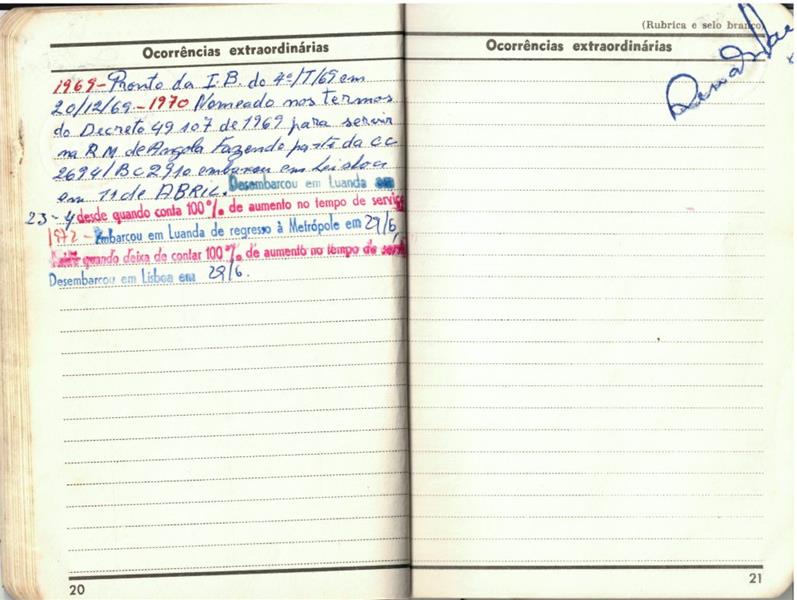 Ocorrências extraordinárias
1969-Pronto da I.B. do 4º/T/69 em
20/12/69.-1970 Nomeado nos termos
do Decreto 49 107 de 1969 para servir
na RM de Angola Fazendo parte da CC
2694/BC2910 embarcou em Lisboa
em 11 de ABRIL. Desembarcou em Luanda em
23-4 desde quando conta 100% de aumento no tempo de serviço
1972- Embarcou em Luanda de regresso à Metrópole em 29/6,
quando deixa de contar 100% de aumento no tempo de servi
Desembarcou em Lisboa em 29/6.
20
(Rubrica e selo branco)
Ocorrências extraordinárias
21